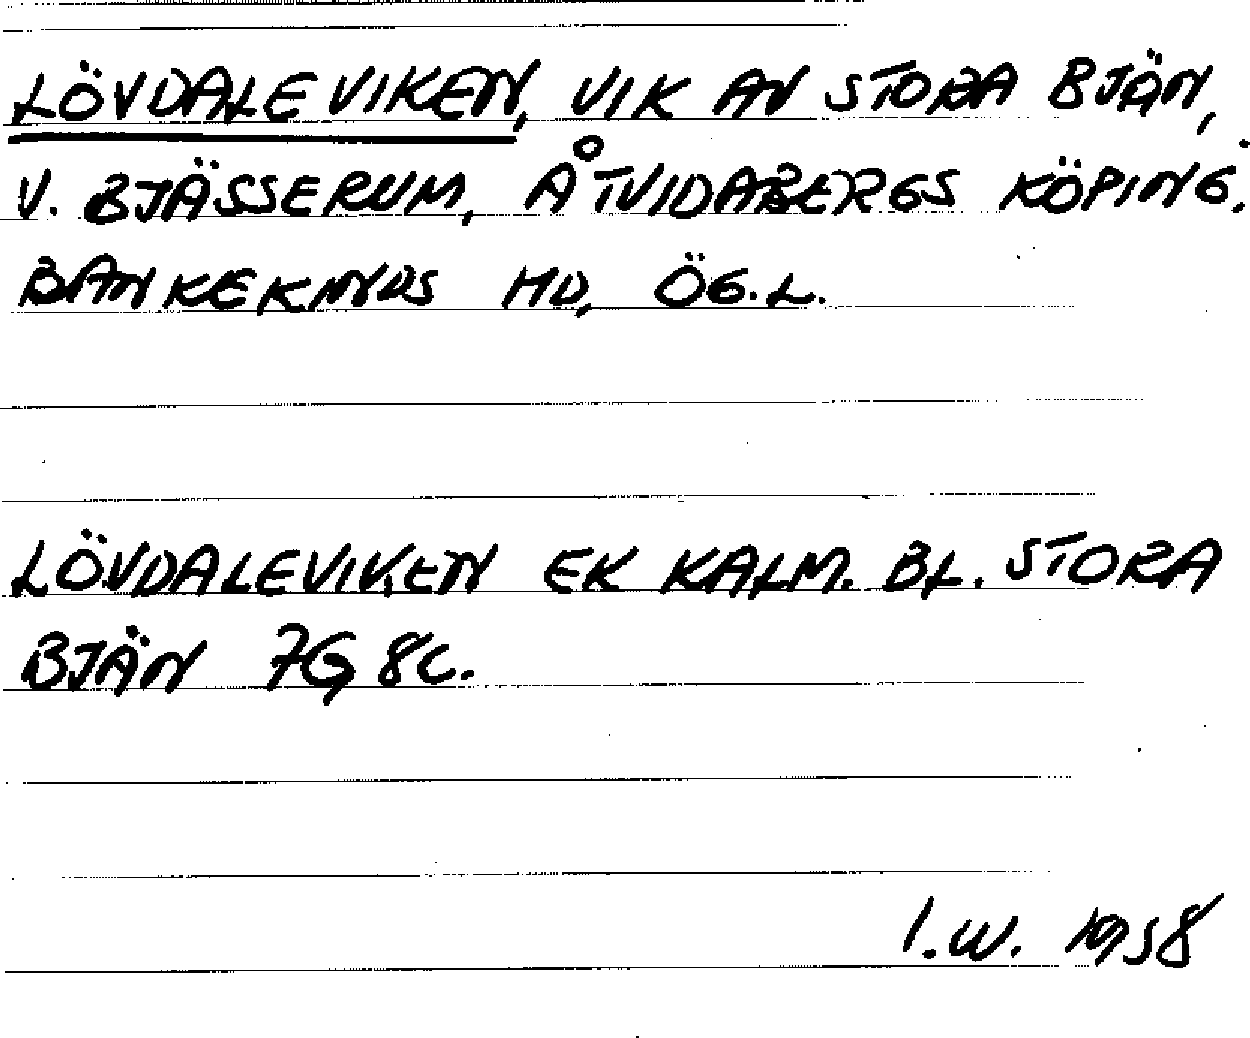 LÖVDALEVIKEN, VIK AV STORA BJÄN,
V. BJÄSSERUM, ÅTVIDABERGS KÖPING.
BANKEKINDS HD, ÖG.L.
LÖVDALEVIKEN EK KALM. BL. STORA
BJÄN 7G 8C.
I.W. 1958